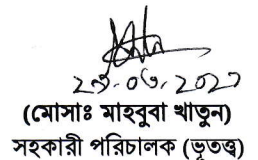 ২৯.০৬.২০২৩
(মোসাঃ মাহবুবা খাতুন)
সহকারী পরিচালক (ভূতত্ত্ব)